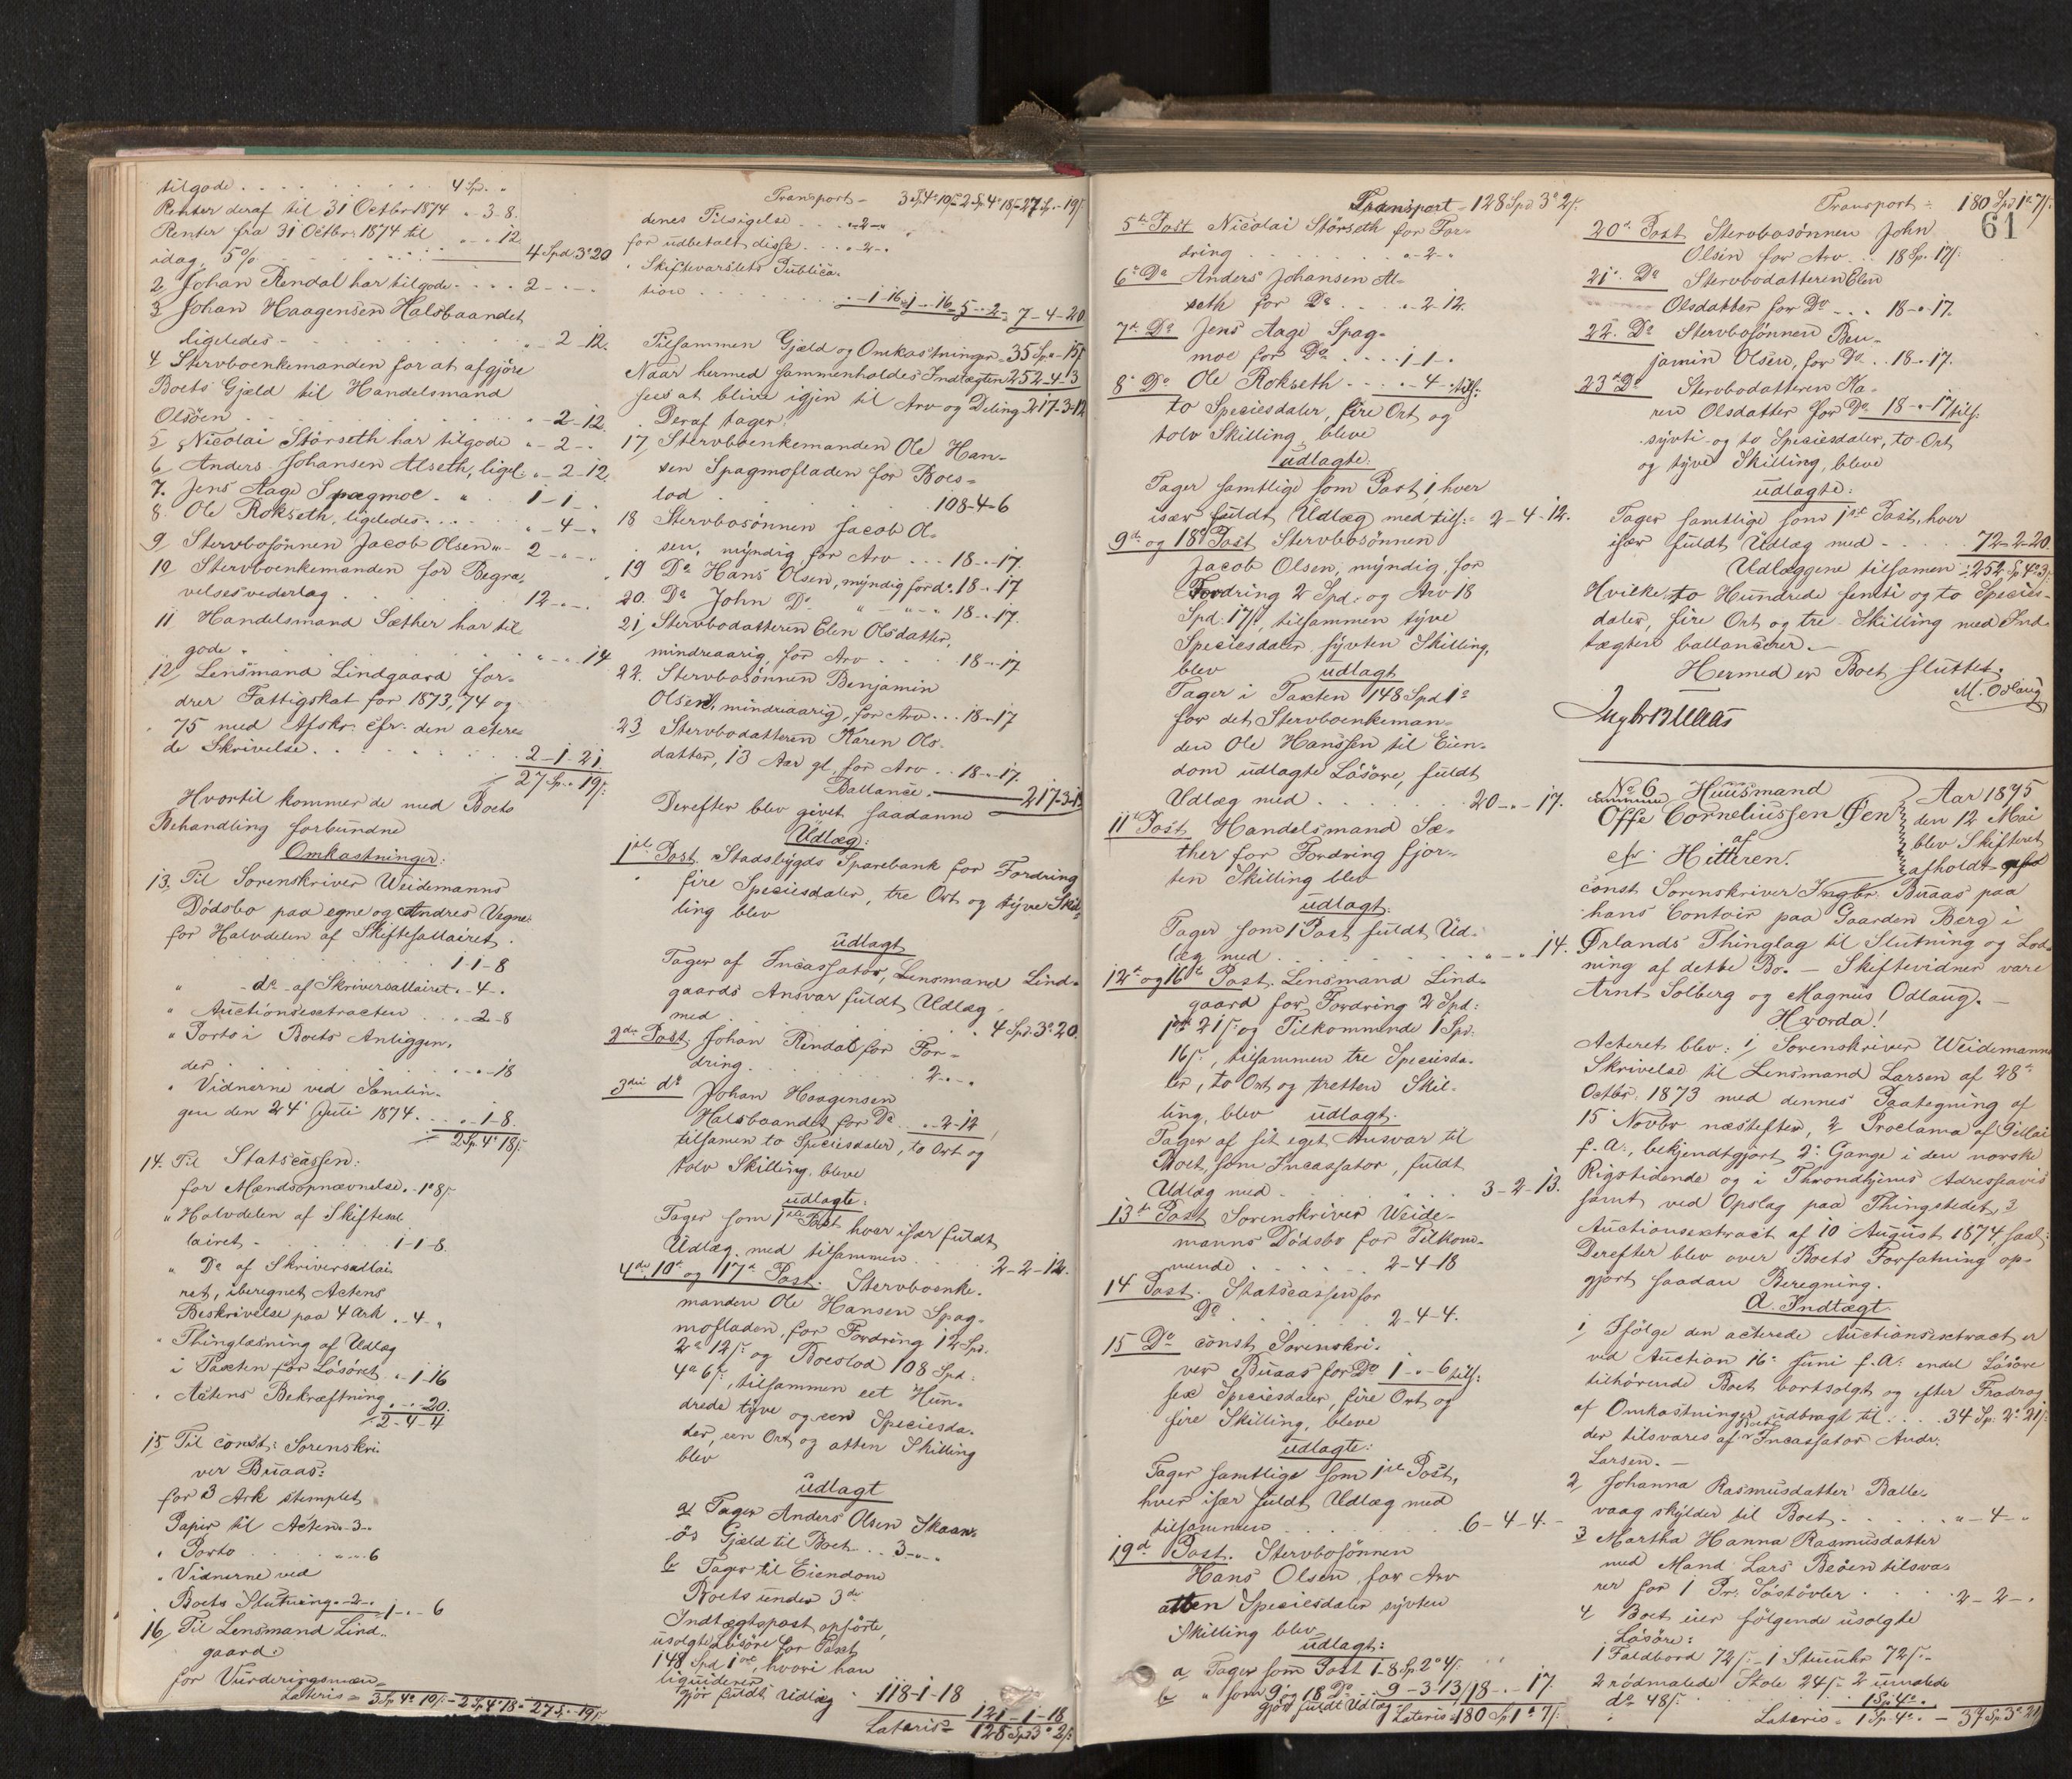 tilgode . . . . . . . . . . 4 Spd. "
Renter deraf til 31 Octbr 1874 " - 3 - 8.
Renter fra 31 Octbr. 1874 til
idag, 5% . . . . . " - " - 12. 4 Spd. 3 o 20
2, Johan Rendal har tilgode . . . . 2 - " - "
3 Johan Haagensen Halsbaandet
ligeledes - . . . . " - 2 - 12.
4 Stervboenkemanden for at afgjöre
Boets Gjæld til Handelsmand
Olsöen . . . . . " - 2 - 12.
5 Nicolai Störseth har tilgode " - 2 - "
6, Anders Johansen Alseth, ligel: " - 2 - 12.
7. Jens Aage Spagmoe . " . 1 - 1 - "
8. Ole Rokseth, ligeledes . . . . " - 4 - "
9, Stervbosönnen Jacob Olsen "- 2 - " - "
10 Stervboenkemanden for Begra-
velsesvederlag . . . . 12 - " - "
11 Handelsmand Sæther har til
gode . . . . . " - " - 14
12, Lensmand Lindgaard for-
drer Fattigskat for 1873, 74 og
75 med Afskr. cfr. den actere-
de Skrivelse . . . . . 2 - 1 - 21.
27 Sp. " 19 s.
Hvortil kommer de med Boets
Behandling forbundne
Omkostninger:
13, Til Sorenskriver Weidemanns
Dödsbo paa egne og Andres Vegne:
for Halvdelen af Skiftesallairet .
. . . . . 1 - 1 - 8
" - do - af Skriversallairet . - 4 - "
" Auctionsextracten . . . " - 2 - 8
" Porto i Boets Anliggen-
der . . . . . " - " - 18
" Vidnerne ved Samlin-
gen den 24 Juli 1874 . . . " - 1 - 8.
2 Sp. 4 o 18 s.
14. Til Statscassen:
for Mændsopnævnelse . - 1 o 8 s.
" Halvdelen af Skiftesal
lairet - . . . . 1 - 1 - 8.
" Do af Skriversallai
ret, iberegnet Actens
Beskrivelse paa 4 Ark . - 4 - "
" Thinglæsning af Udlæg
i Taxten for Lösöret . - 1 - 16
" Actens Bekræftning " - " - 20.
2 - 4 - 4
15, Til const: Sorenskri
ver Buaas:
for 3 Ark stemplet
Papir til Acten - 3 - "
" Porto . . . . " - " - 6
" Vidnerne ved
Boets Slutning . - 2 - " 1 - " - 6
16, Til Lensmand Lind-
gaard:
for Vurderingsmæn-
Lateris = 3 Sp. 4 o 10 s. - 2 Sp. 4 o 18 - 27 Sp. " 19 s.
Transport - 3 Sp. 4 o 10 s. - 2 Sp. 4 o 18 s. - 27 Sp. " - 19 s.
denes Tilsigelse . . . . " - 2 - "
for udbetalt disse . . . . " - 2 - "
" Skiftevarslets Publica-
tion . . . . . " - 1 - 16 = 1 - " - 16 = 5 - " - 2 = 7 - 4 - 20
Tilsammen Gjæld og Omkostninger = 35 Sp. " - 15 s.
Naar hermed sammenholdes Indtægten 252 - 4 - 3
sees at blive igjen til Arv og Deling 217 - 3 - 12
Deraf tager:
17, Stervboenkemanden Ole Han-
sen Spagmofladen for Boes-
lod . . . . . . 108 - 4 - 6
18 Stervbosönnen Jacob Ol-
sen, myndig for Arv . . . 18 - " - 17.
19 Do Hans Olsen, myndig for do. 18 - " - 17
20. Do John Do " - " - " 18 - " - 17.
21, Stervbodatteren Elen Olsdatter,
mindreaarig, for Arv . . . 18 - " - 17
22. Stervbosönnen Benjamin
Olsen, mindreaarig, for Arv . . . 18 - " - 17
23 Stervbodatteren Karen Ols-
datter, 13 Aar gl. for Arv . . 18 - " - 17.
Ballance . 217 - 3 - 12
Derefter blev givet saadanne
Udlæg:
1ste Post. Stadsbygds Sparebank for Fordring
fire Speciesdaler, tre Ort og tyve Skil-
ling blev
udlagt
Tager af Incassator, Lensmand Lind-
gaards Ansvar fuldt Udlæg
med . . . . . 4 Spd. 3 o 20.
2den Post, Johan Rendal for For-
dring . . . . . 2 - " - "
3die do Johan Haagensen
Halsbaandet for Do . . " - 2 - 12
tilsamen to Speciesdaler, to Ort og
tolv Skilling, bleve
udlagte:
Tager som 1ste Post hver især fuldt
Udlæg med tilsammen . . . 2 - 2 - 12.
4de 10de og 17de Post. Stervboenke-
manden Ole Hansen Spag-
mofladen, for Fordring 12 Spd.
2 o 12 s. og Boeslod 108 Spd.
4 o 6 s., tilsammen eet Hun-
drede tyve og een Speciesda-
ler, een Ort og atten Skilling
blev
udlagt
a, Tager Anders Olsen Skaan-
ös Gjæld til Boet . . 3 - " - "
b Tager til Eiendom
Boets under 3de
Indtægtspost opförte,
usolgte Lösöre for Taxt
148 Spd 1 ort, hvori han
liquiderer
Gjör fuldt Udlæg . 118 - 1 - 18
121 - 1 - 18
Lateris = 128 Spd. 3 o 2 s.
Transport - 128 Spd 3 o 2 s.
5te Post Nicolai Störseth for For-
dring . . . . . " - 2 - "
6te Do Anders Johansen Al-
seth for Do . . . . " - 2 - 12.
7de Do Jens Aage Spag-
moe for Do . . . . 1 - 1 - "
8de Do Ole Rokseth . . . . " - 4 - " tils:
to Speciesdaler, fire Ort og
tolv Skilling, bleve
udlagte:
Tager samtlige som Post 1, hver
især fuldt Udlæg med tils: - 2 - 4 - 12.
9de og 18de Post Stervbosönnen
Jacob Olsen, myndig, for
Fordring 2 Spd. og Arv 18
Spd. 17 s., tilsammen tyve
Speciesdaler sytten Skilling,
blev udlagt
Tager i Taxten 148 Spd 1 o
for det Stervboenkeman-
den Ole Hanssen til Eien-
dom udlagte Lösöre, fuldt
Udlæg med . . . . . 20 - " - 17.
11te Post. Handelsmand Sæ-
ther for Fordring fjor-
ten Skilling blev
udlagt:
Tager som 1 Post fuldt Ud-
læg med . . . . . " - " - 14.
12te og 16de Post. Lensmand Lind-
gaard for Fordring 2 Spd:
1 ort 21 s. og Tilkommende 1 Spd.
16 s., tilsammen tre Speciesda-
ler, to Ort og tretten Skil-
ling, blev udlagt.
Tager af sit eget Ansvar til
Boet, som Incassator, fuldt
Udlæg med . . . . . 3 - 2 - 13.
13de Post Sorenskriver Weide-
manns Dödsbo for Tilkom-
mende . . . . . 2 - 4 - 18
14 Post. Statscassen for
Do . . . . . 2 - 4 - 4.
15 Do const. Sorenskri-
ver Buaas for Do 1 - " - 6 tils:
sex Speciesdaler, fire Ort og
fire Skilling, bleve
udlagte:
Tager samtlige som 1ste Post,
hver især fuldt Udlæg med
tilsammen . . . . . 6 - 4 - 4. -
19de Post. Stervbosönnen
Hans Olsen, for Arv
atten Speciesdaler sytten
Skilling blev
udlagt:
a Tager som Post 1 - 8 Sp. 2 o 4 s.
b " som 9 og 18 Do . . 9 - 3 - 13 / 18 - " - 17.
Gjör fuldt Udlæg Lateris = 180 Sp. 1 o 7 s.
Transport = 180 Spd 1 o 7 s.
61
20de Post Stervbosönnen John
Olsen for Arv . . . 18 Sp. " 17 s.
21de Do Stervbodatteren Elen
Olsdatter for Do . . . 18 - " - 17.
22. Do Stervbosönnen Ben-
jamin Olsen, for Do . . 18 - " - 17.
23de Do Stervbodatteren Ka-
ren Olsdatter for Do 18 - " - 17 tils:
sytti og to Speciesdaler, to Ort
og tyve Skilling, bleve
udlagte:
Tager samtlige som 1ste Post, hver
især fuldt Udlæg med . . . . 72 - 2 - 20
Udlæggene tilsamen = 252 Sp 4 o 3 s.
Hvilke to Hundrede femti og to Species-
daler, fire Ort og tre Skilling med Ind-
tægten ballancerer. -
Hermed er Boet sluttet.
M. Odlaug
Ingbr Buaas
No 6 Huusmand
Offe Corneliussen Øen
af
Hitteren.
Aar 1875
den 12 Mai
blev Skifteret
afholdt af
const. Sorenskriver Ingbr. Buaas paa
hans Contoir paa Gaarden Berg i
Ørlands Thinglag til Slutning og Lod-
ning af dette Bo. - Skiftevidner vare
Arnt Solberg og Magnus Odlaug. -
Hvorda!
Acteret blev: 1, Sorenskriver Weidemanns
Skrivelse til Lensmand Larsen af 28de
Octbr. 1873 med dennes Paategning af
15 Novbr næstefter, 2, Proclama af 
f. A., bekjendtgjort 2de Gange i den norske
Rigstidende og i Throndhjems Adresseavis
samt ved Opslag paa Thingstedet, 3
Auctionsextract af 10 August 1874, saal:
Derefter blev over Boets Forfatning op-
gjort saadan Beregning.
A. Indtægt
1, Ifölge den acterede Auctionsextract er
ved Auction 16de Juni f. A. endel Lösöre
tilhörende Boet bortsolgt og efter Fradrag
af Omkostninger udbragt til . . . . 34 Sp. 2 o 21 s.
der tilsvares af Boets Incassator Andr.
Larsen. -
2, Johanna Rasmusdatter Balle-
vaag skylder til Boet . . . . . " - 4 - "
3 Martha Hanna Rasmusdatter
med Mand Lars Beöen tilsva-
rer for 1 Pr. Söstövler . . . . 2 - 2 - "
4 Boet eier fölgende usolgte
Lösöre:
1 Faldbord 72 s. - 1 Stuuhr 72 s. -
2 rödmalede Stole 24 s. - 2 umalede
do 48 s. . . . . 1 Sp. 4 o "
Lateris = 1 Sp. 4 o " - 37 Sp. 3 o 21